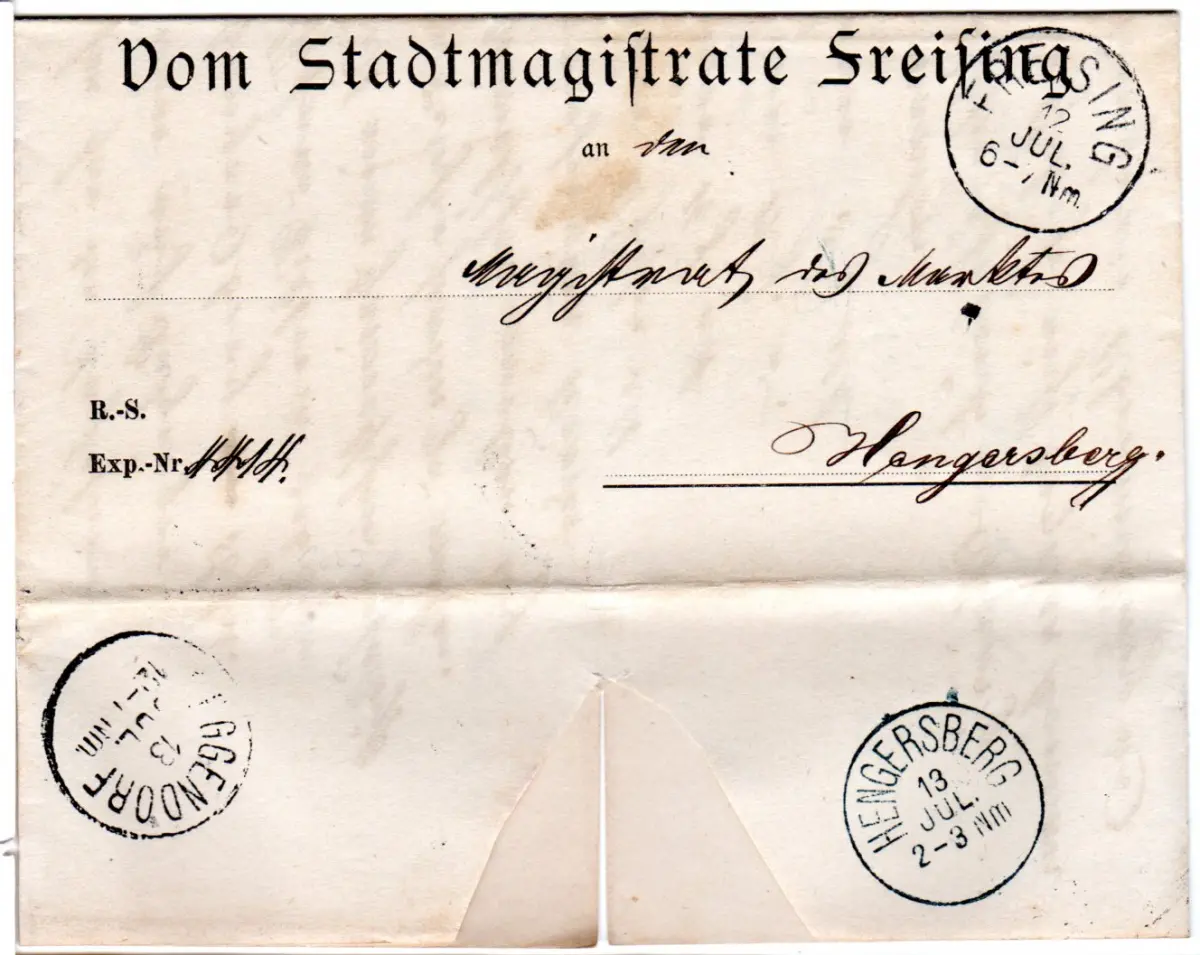 Vom Stadtmagistrate Freising
FREISING
12
JUL.
6-7 Nm.
an den
Magistrat des Marktes
R.-S.
Exp.-Nr.
Hengersberg.
GGENDORF
13
JUL.
Nm.
HENGERSBERG
13
JUL.
2-3 Nm